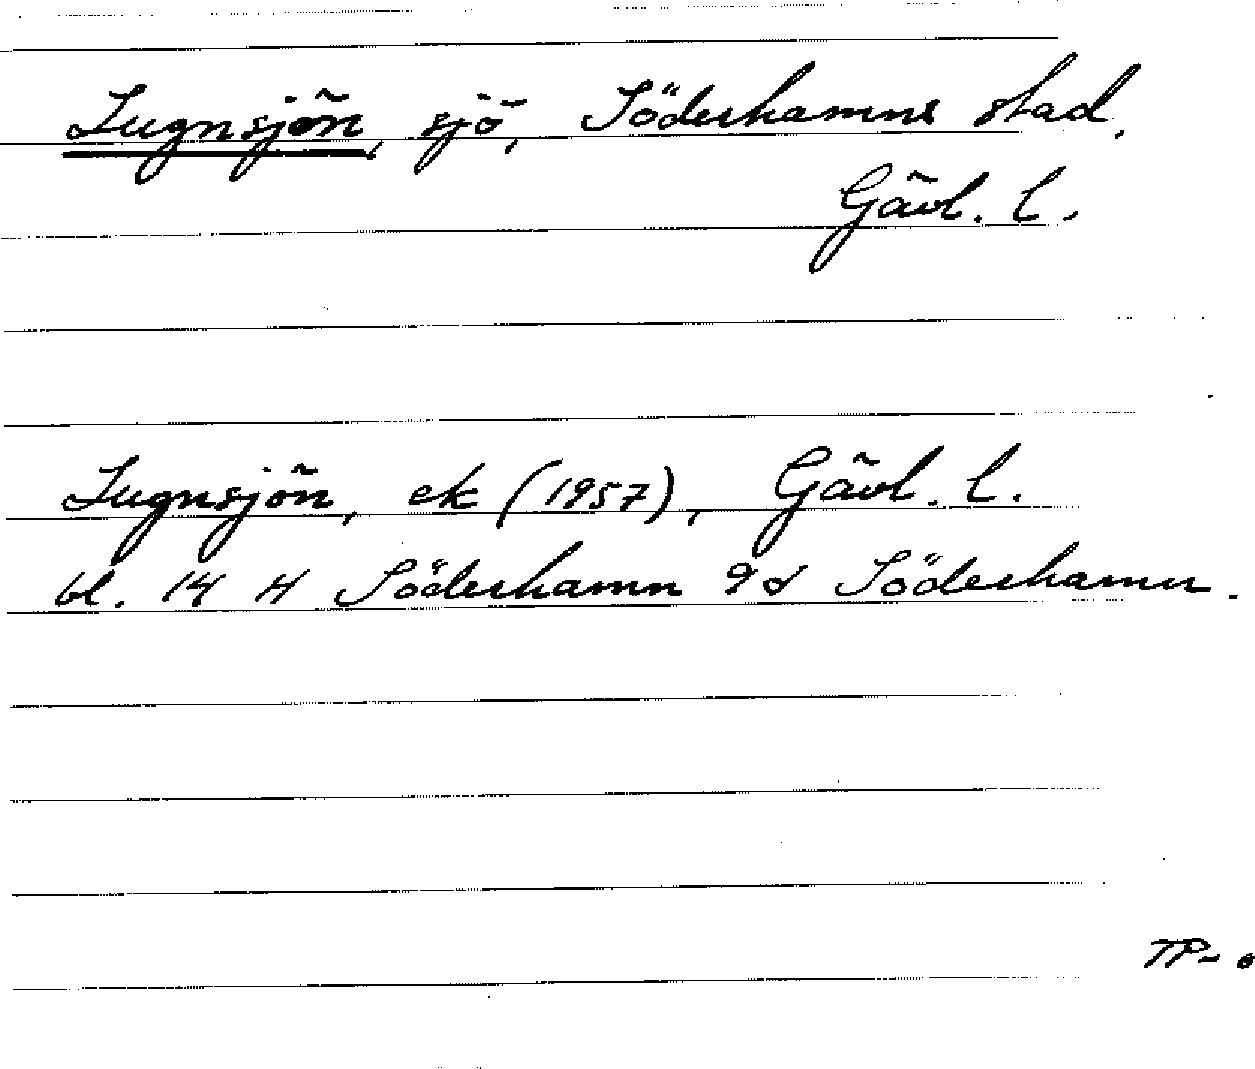 Lugnsjön, sjö, Söderhamns stad,
Gävl. l.
Lugnsjön, ek (1957), Gävl. l.
bl. 14 H Söderhamn 9d Söderhamn.
TP-